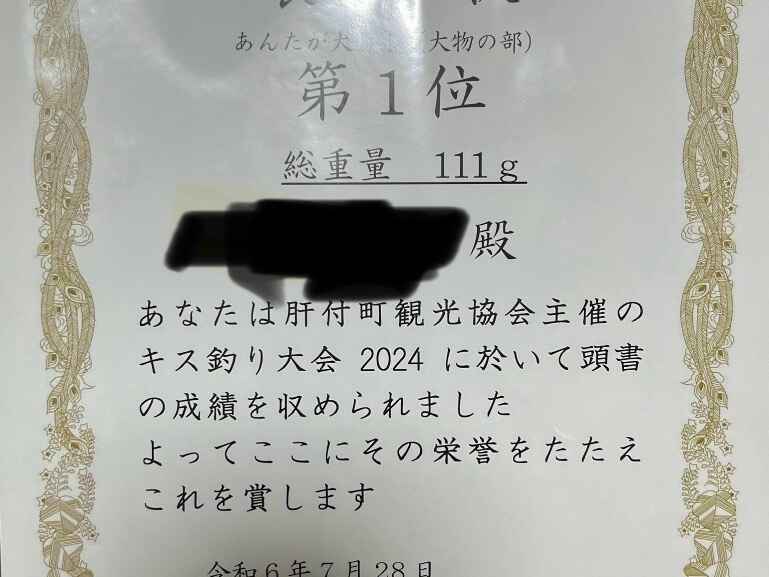 あんたが大 (大物の部)
第1位
総重量 111g
殿
あなたは肝付町観光協会主催の
キス釣り大会 2024 に於いて頭書
の成績を収められました
よってここにその栄誉をたたえ
これを賞します
令和6年7月28日